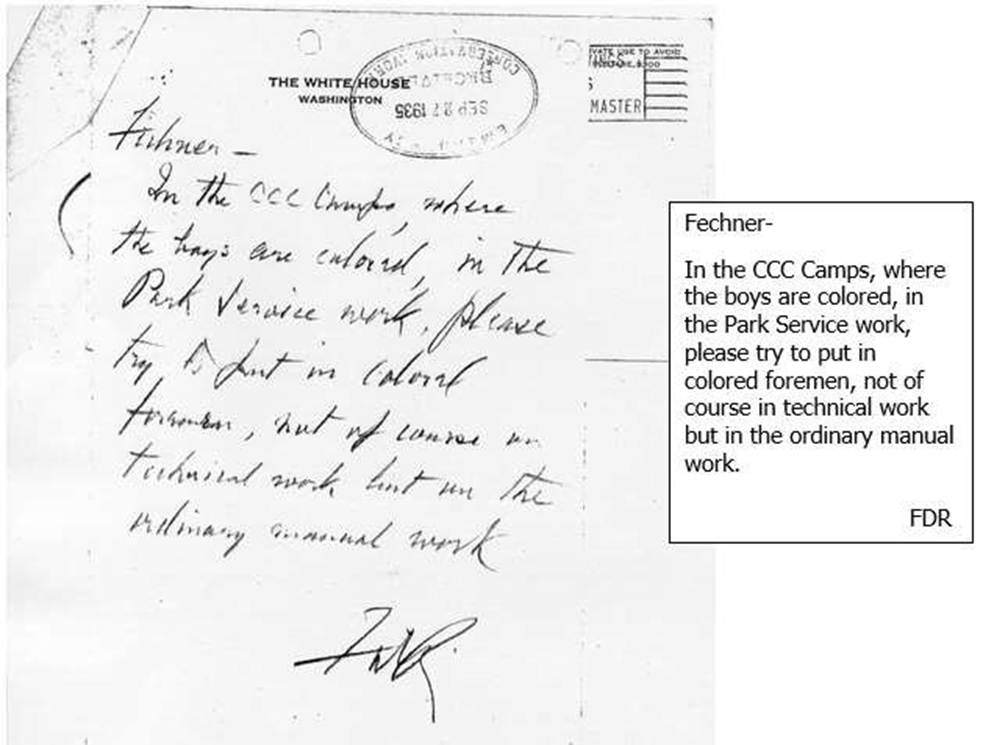 THE WHITE HOUSE
WASHINGTON
EMERGENCY
SEP 27 1935
RECEIVED
CONSERVATION WORK
PRIVATE USE TO AVOID
MASTER
Fechner —
In the CCC Camps, where
the boys are colored, in the
Park Service work, please
try to put in colored
foremen, not of course in
technical work but in the
ordinary manual work
FDR
Fechner-
In the CCC Camps, where
the boys are colored, in
the Park Service work,
please try to put in
colored foremen, not of
course in technical work
but in the ordinary manual
work.
FDR